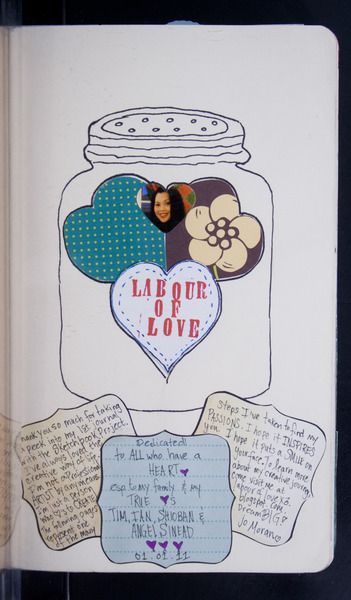 LABOUR
OF
LOVE
Thank you so much for taking
a peek into my LBS journal
with the Sketchbook Project.
I've always loved the
creative way of life.
I'm not a Professional
ARTIST by any means.
I'm just a person
who ♥'s to CREATE!
The following pages
represent one
of the many
Dedicated!
to ALL who have a
HEART ♥
esp. to my family & my
TRUE ♥'s
TIM, IAN, SHIOBAN &
ANGEL SINEAD
♥ ♥ ♥
01.01.11
steps I've taken to find my
PASSIONS. I hope it INSPIRES
you. I hope it puts a SMILE on
your face. To learn more
about my creative journey,
come visit me at
blogspot.com.
Dream BIG!
Jo Moranco